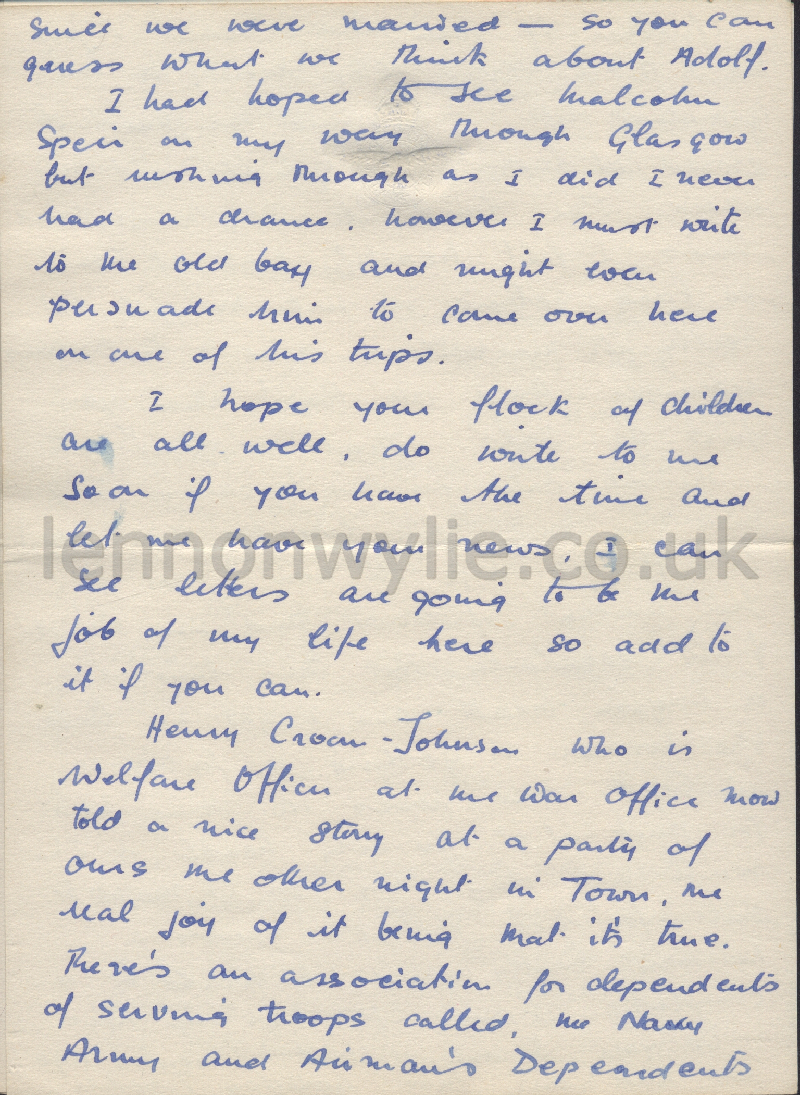 since we were married — so you can
guess what we think about Adolf.
I had hoped to see Malcolm
Speir on my way through Glasgow
but rushing through as I did I never
had a chance. however I must write
to the old boy and might even
persuade him to come over here
on one of his trips.
I hope your flock of children
are all well, do write to me
soon if you have the time and
let me have your news, I can
lennonwylie.co.uk
see letters are going to be the
job of my life here so add to
it if you can.
Henry Croom-Johnson who is
Welfare Officer at the War Office now
told a nice story at a party of
ours the other night in Town, the
real joy of it being that it's true.
There's an association for dependents
of serving troops called, the Navy
Army and Airman's Dependents